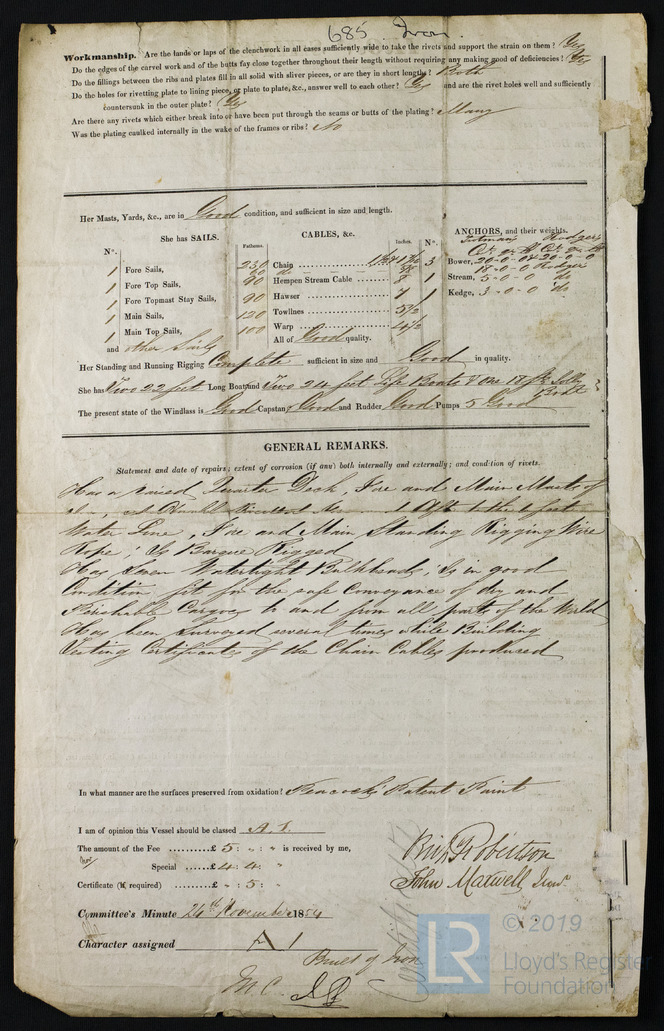 685 Iron
Workmanship. Are the lands or laps of the clenchwork in all cases sufficiently wide to take the rivets and support the strain on them? Yes
Do the edges of the carvel work and of the butts fay close together throughout their length without requiring any making good of deficiencies? Yes
Do the fillings between the ribs and plates fill in all solid with sliver pieces, or are they in short lengths? Both
Do the holes for rivetting plate to lining piece, or plate to plate, &c., answer well to each other? Yes and are the rivet holes well and sufficiently
countersunk in the outer plate? Yes
Are there any rivets which either break into or have been put through the seams or butts of the plating? Many
Was the plating caulked internally in the wake of the frames or ribs? No
Her Masts, Yards, &c., are in Good condition, and sufficient in size and length.
She has SAILS.
CABLES, &c.
ANCHORS, and their weights.
Nº.
Fathoms.
Inches.
Nº.
Trotmans Rodgers
1 Fore Sails,
1 Fore Top Sails,
1 Fore Topmast Stay Sails,
1 Main Sails,
1 Main Top Sails,
and other Sails
Chain
90 Hempen Stream Cable 8
90 Hawser 7
120 Towlines 5½
100 Warp 4½
All of Good quality.
3 Bower, 20-0-0
18-0-0 Rodgers
1 Stream, 5-0-0 do
1 Kedge, 3-0-0 do
Her Standing and Running Rigging Complete sufficient in size and Good in quality.
She has Two 22 feet Long Boat and Two 24 feet Life Boats & One 18 ft Jolly Boat
The present state of the Windlass is Good Capstan Good and Rudder Good Pumps 5 Good
GENERAL REMARKS.
Statement and date of repairs; extent of corrosion (if any) both internally and externally; and condition of rivets.
Has a raised Quarter Deck, Fore and Main Masts of
Water Line, Fore and Main Standing Rigging Wire
Rope; Is Barque Rigged
Has Seven Watertight Bulkheads. Is in good
Condition fit for the safe conveyance of dry and
Perishable Cargoes to and from all parts of the World
Has been Surveyed several times while Building
Testing Certificates of the Chain Cables produced
In what manner are the surfaces preserved from oxidation? Peacock's Patent Paint
I am of opinion this Vessel should be classed A.1.
The amount of the Fee £ 5: " : " is received by me,
Special £ 4: 4: "
Certificate (if required) £ " : 5: "
Robertson
John Maxwell Junr.
Committee's Minute 24th November 1854
Character assigned A 1
Built of Iron
© 2019
LR
Lloyd's Register
Foundation